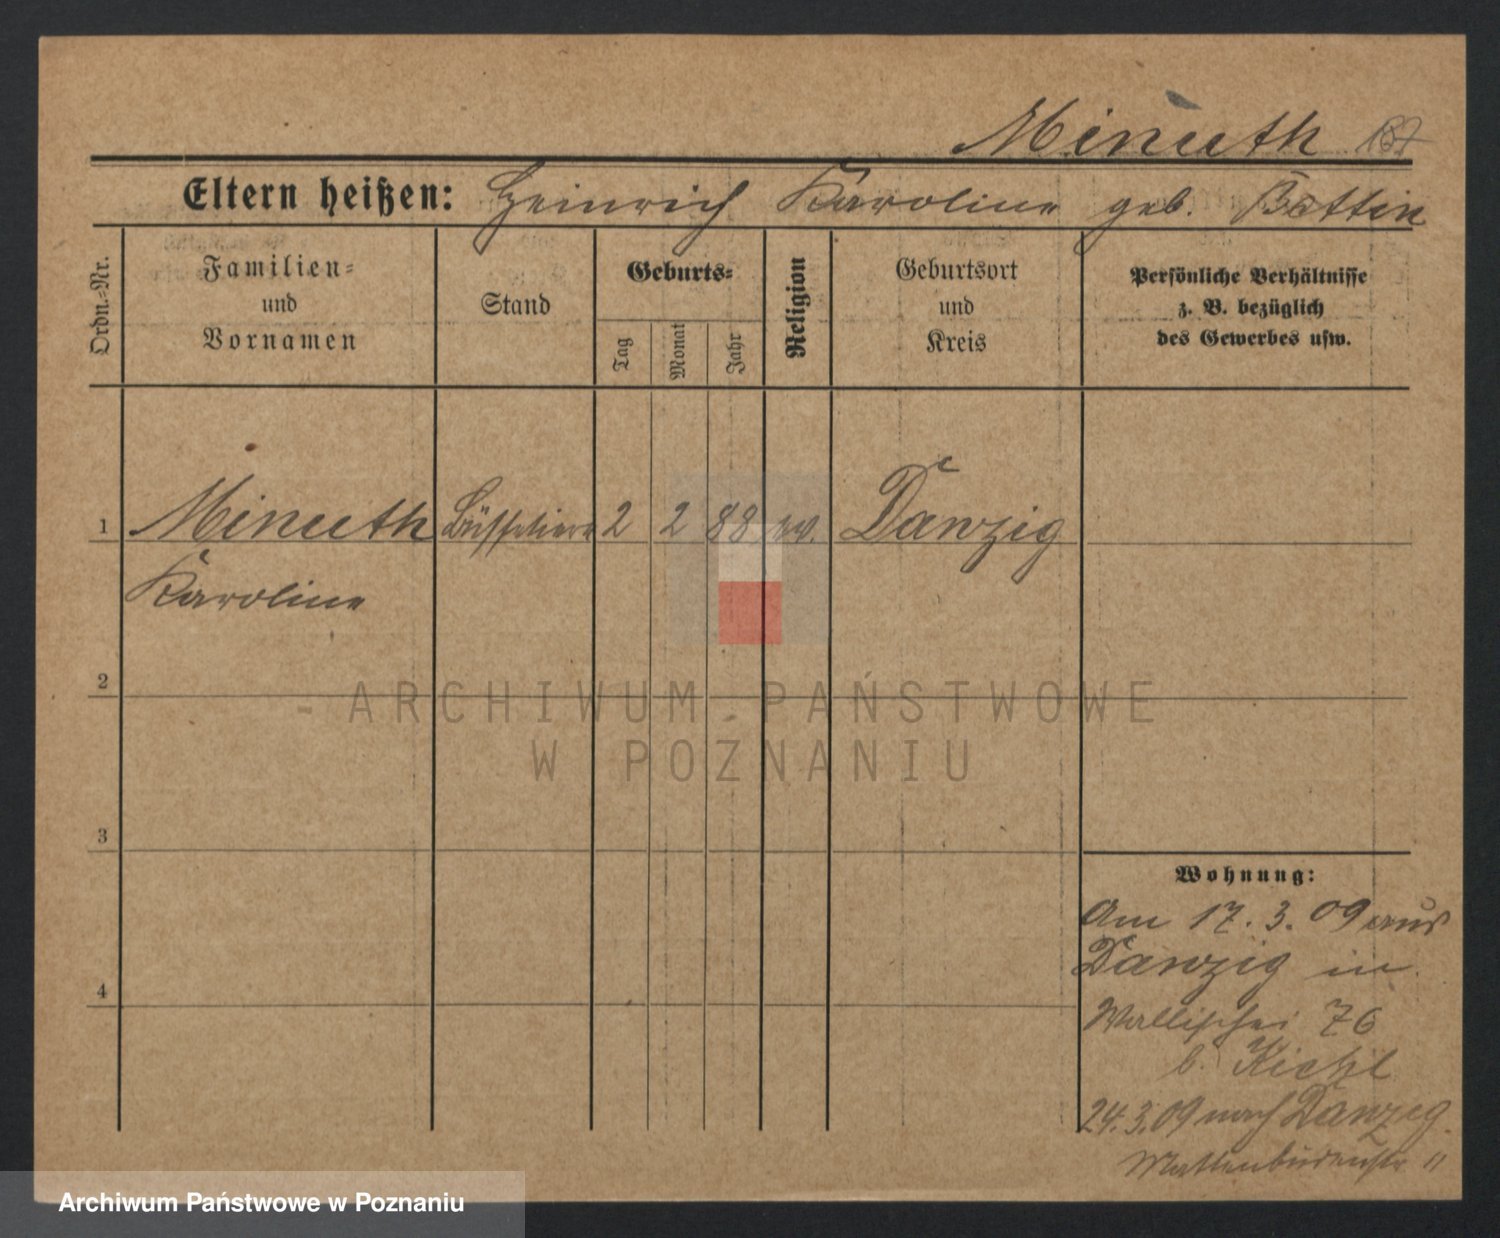 Minuth 187
Eltern heißen: Heinrich Karoline geb. Bottin
Ordn.=Nr.
Familien=
und
Vornamen
Stand
Geburts=
Tag
Monat
Jahr
Religion
Geburtsort
und
Kreis
Persönliche Verhältnisse
z. B. bezüglich
des Gewerbes usw.
1 Minuth Büffetiere 2 2 88 ev. Danzig
Karoline
2
ARCHIWUM PAŃSTWOWE
W POZNANIU
3
Wohnung:
Am 17.3.09 aus
Danzig in
4
Wallischei 76
b.
24.3.09 nach Danzig
Mattenbudenstr 11
Archiwum Państwowe w Poznaniu